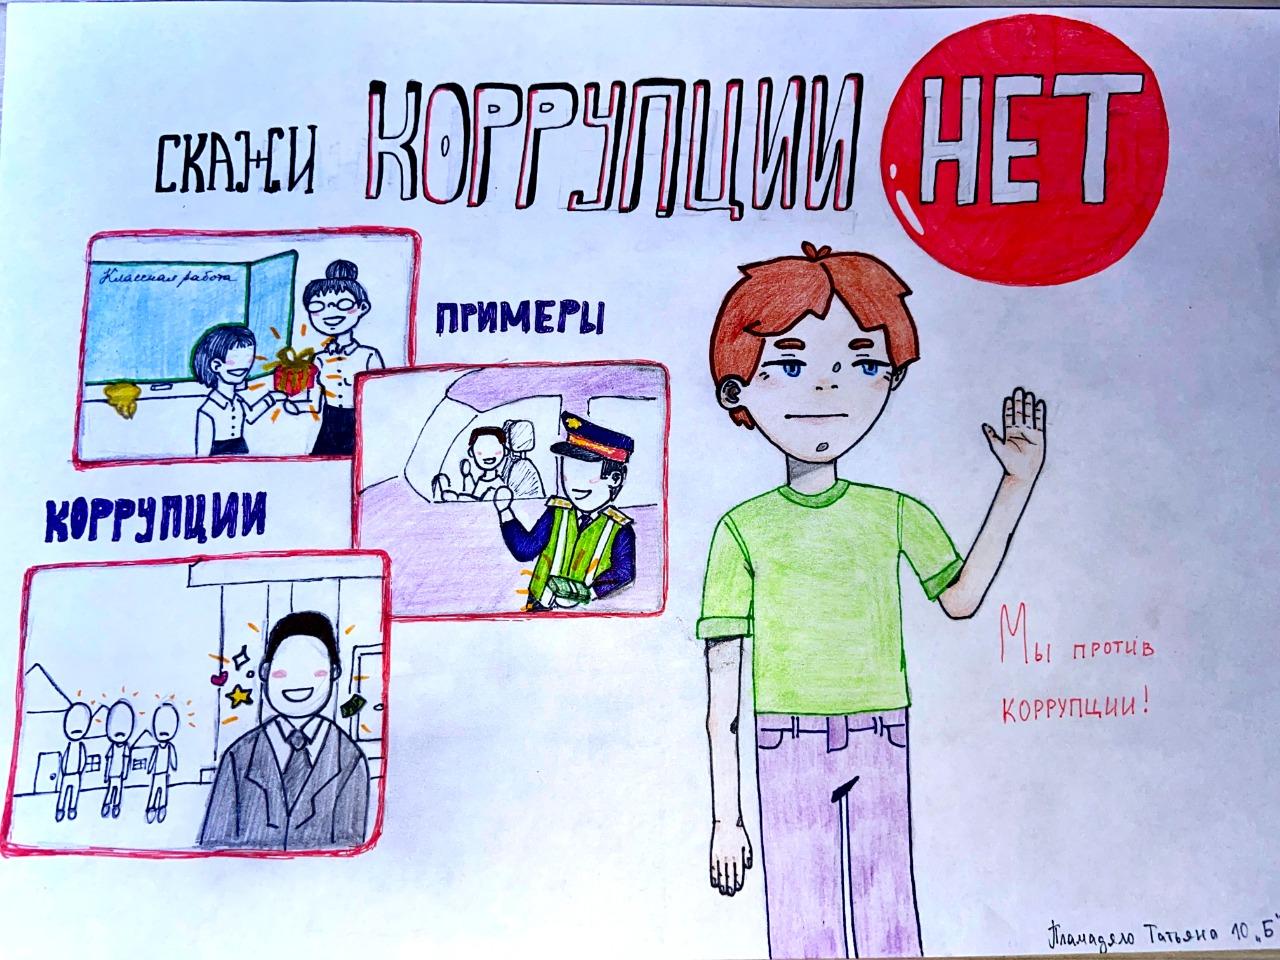 СКАЖИ КОРРУПЦИИ НЕТ
Классная работа
ПРИМЕРЫ
КОРРУПЦИИ
Мы против
коррупции!
Пламадяло Татьяна 10 „Б"